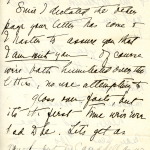 Since I dictated the later
page your letter has come &
I hasten to assure you that
I am not you —. Of course
we're both humiliated over the
, no use attempting to
gloss our facts, but
it's the first time
had to be. Let's get as